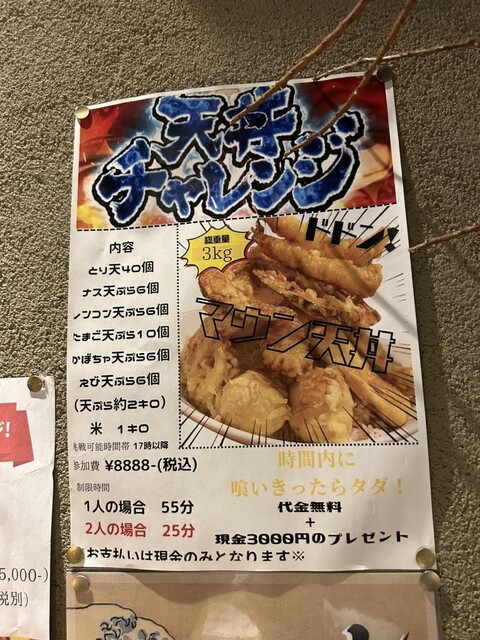 天丼
チャレンジ
内容
とり天40個
ナス天ぷら6個
レンコン天ぷら6個
たまご天ぷら10個
かぼちゃ天ぷら6個
えび天ぷら6個
(天ぷら約2キロ)
米 1キロ
総重量
3kg
ドドン!
マウン天丼
挑戦可能時間帯 17時以降
参加費 ¥8888-(税込)
制限時間
1人の場合 55分
2人の場合 25分
時間内に
喰いきったらタダ!
代金無料
+
現金3000円のプレゼント
お支払いは現金のみとなります※
ジ!
5,000-)
税別)